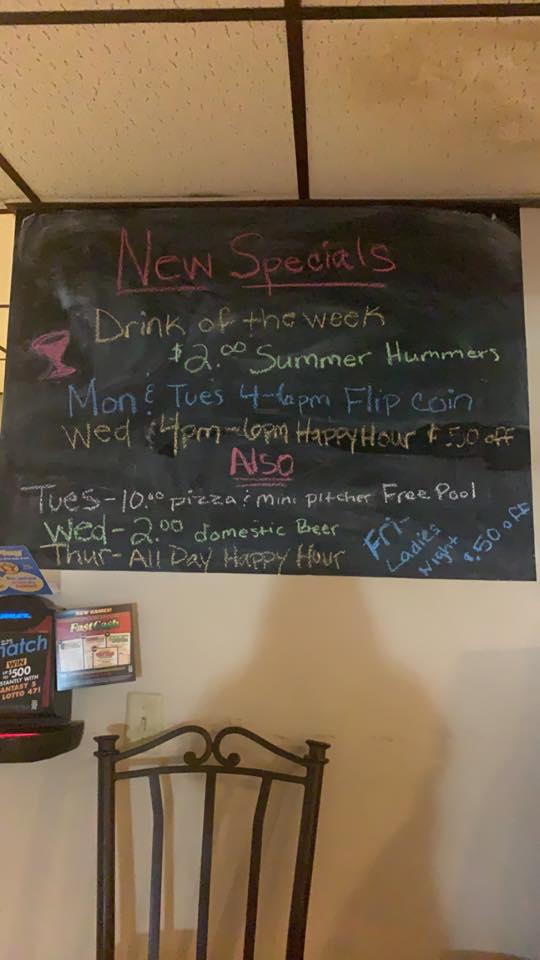 New Specials
Drink of the week
$2.00 Summer Hummers
Mon & Tues 4-6pm Flip coin
Wed 4pm-6pm Happy Hour $.50 off
Also
Tues-10.00 pizza & mini pitcher Free Pool
Wed-2.00 domestic Beer
Thur-All Day Happy Hour
Fri-
Ladies
Night
$.50 off
NEW GAMES!
Fast Cash
WIN
$500
INSTANTLY WITH
FANTASY 5
LOTTO 47!